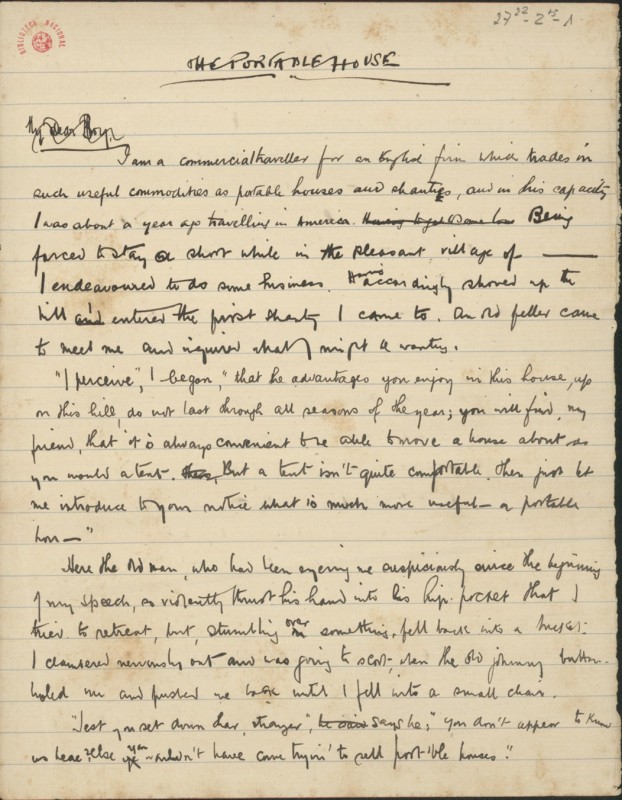 BIBLIOTECA NACIONAL
27²²-2¹⁵-1
THE PORTABLE HOUSE
My dear Boy,
I am a commercial traveller for an English firm which trades in
such useful commodities as portable houses and shanties, and in this capacity
I was about a year ago travelling in America. Being
forced to stay a short while in the pleasant village of ———
I endeavoured to do some business. accordingly shoved up the
hill and entered the first shanty I came to. An old feller came
to meet me and inquired what I might be wanting.
"I perceive", I began, "that the advantages you enjoy in this house, up
on this hill, do not last through all seasons of the year; you will find, my
friend, that it is always convenient to be able to move a house about as
you would a tent. But a tent isn't quite comfortable. Then just let
me introduce to your notice what is much more useful — a portable
hou—"
Here the old man, who had been eyeing me suspiciously since the beginning
of my speech, so violently thrust his hand into his hip-pocket that I
tried to retreat, but, stumbling over something, fell back into a bucket.
I clambered nervously out and was going to scoot, when the old johnny button-
holed me and pushed me back until I fell into a small chair.
"Jest you set down thar, stranger", he said says he; "you don't appear to know
us hear, else you wouldn't have come tryin' to sell port'ble houses."